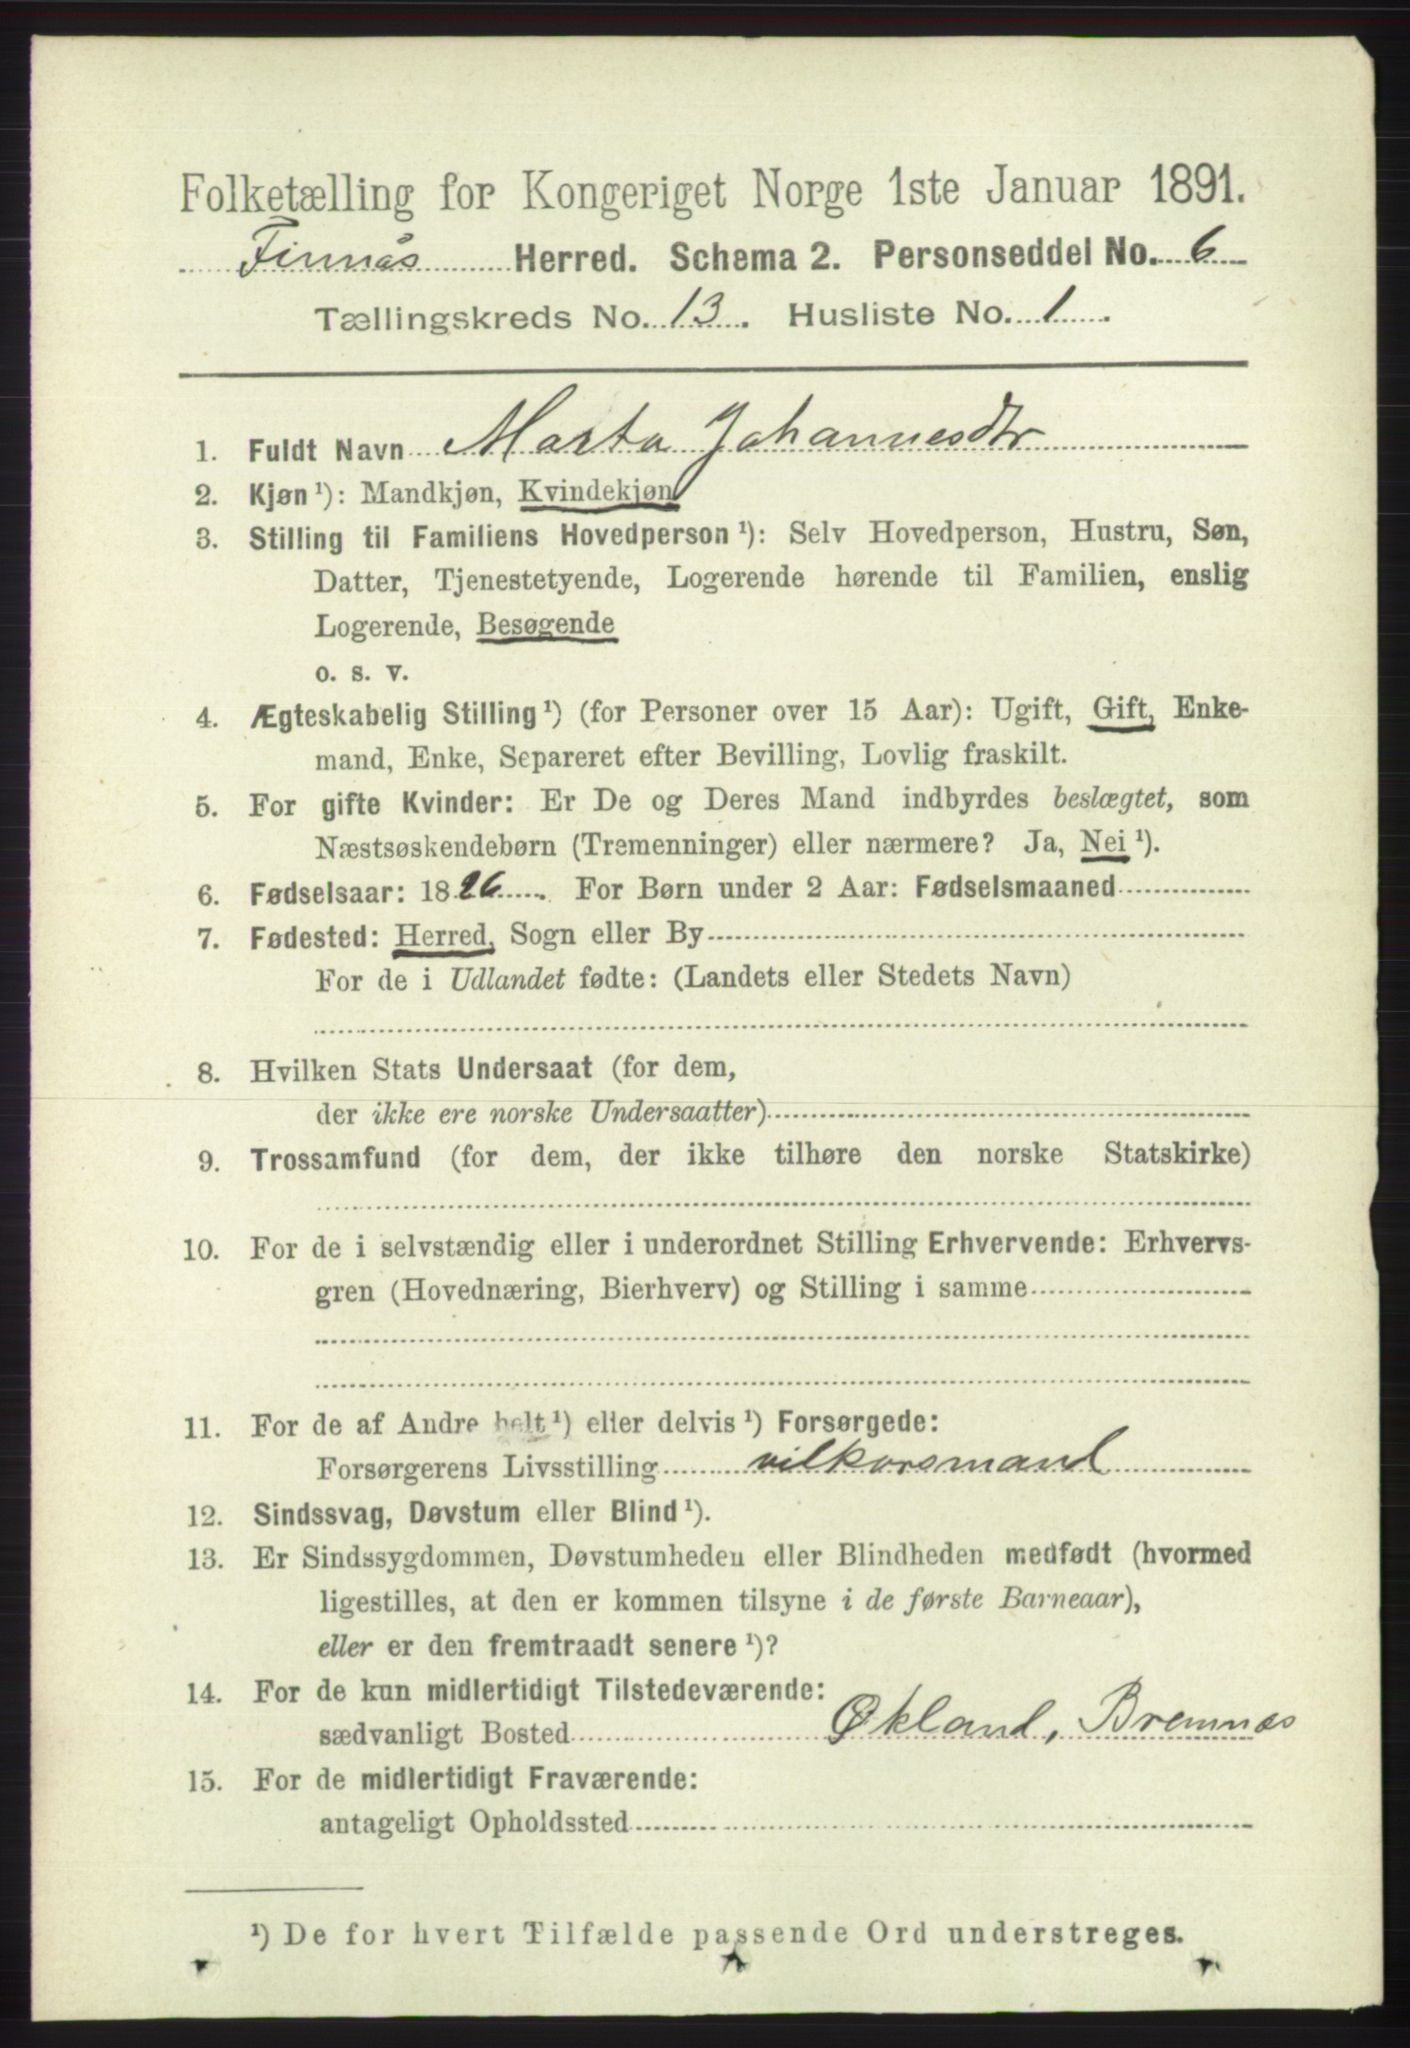 Folketælling for Kongeriget Norge 1ste Januar 1891.
Finnås Herred. Schema 2. Personseddel No. 6
Tællingskreds No. 13. Husliste No. 1.
1. Fuldt Navn Marta Johannesdtr
2. Kjøn ¹): Mandkjøn, Kvindekjøn
3. Stilling til Familiens Hovedperson ¹): Selv Hovedperson, Hustru, Søn,
Datter, Tjenestetyende, Logerende hørende til Familien, enslig
Logerende, Besøgende
o. s. v.
4. Ægteskabelig Stilling ¹) (for Personer over 15 Aar): Ugift, Gift, Enke-
mand, Enke, Separeret efter Bevilling, Lovlig fraskilt.
5. For gifte Kvinder: Er De og Deres Mand indbyrdes beslægtet, som
Næstsøskendebørn (Tremenninger) eller nærmere? Ja, Nei ¹).
6. Fødselsaar: 1826. For Børn under 2 Aar: Fødselsmaaned
7. Fødested: Herred, Sogn eller By
For de i Udlandet fødte: (Landets eller Stedets Navn)
8. Hvilken Stats Undersaat (for dem,
der ikke ere norske Undersaatter)
9. Trossamfund (for dem, der ikke tilhøre den norske Statskirke)
10. For de i selvstændig eller i underordnet Stilling Erhvervende: Erhvervs-
gren (Hovednæring, Bierhverv) og Stilling i samme
11. For de af Andre helt ¹) eller delvis ¹) Forsørgede:
Forsørgerens Livsstilling vilkorsmand
12. Sindssvag, Døvstum eller Blind ¹).
13. Er Sindssygdommen, Døvstumheden eller Blindheden medfødt (hvormed
ligestilles, at den er kommen tilsyne i de første Barneaar),
eller er den fremtraadt senere ¹)?
14. For de kun midlertidigt Tilstedeværende:
sædvanligt Bosted Økland, Bremnæs
15. For de midlertidigt Fraværende:
antageligt Opholdssted
¹) De for hvert Tilfælde passende Ord understreges.